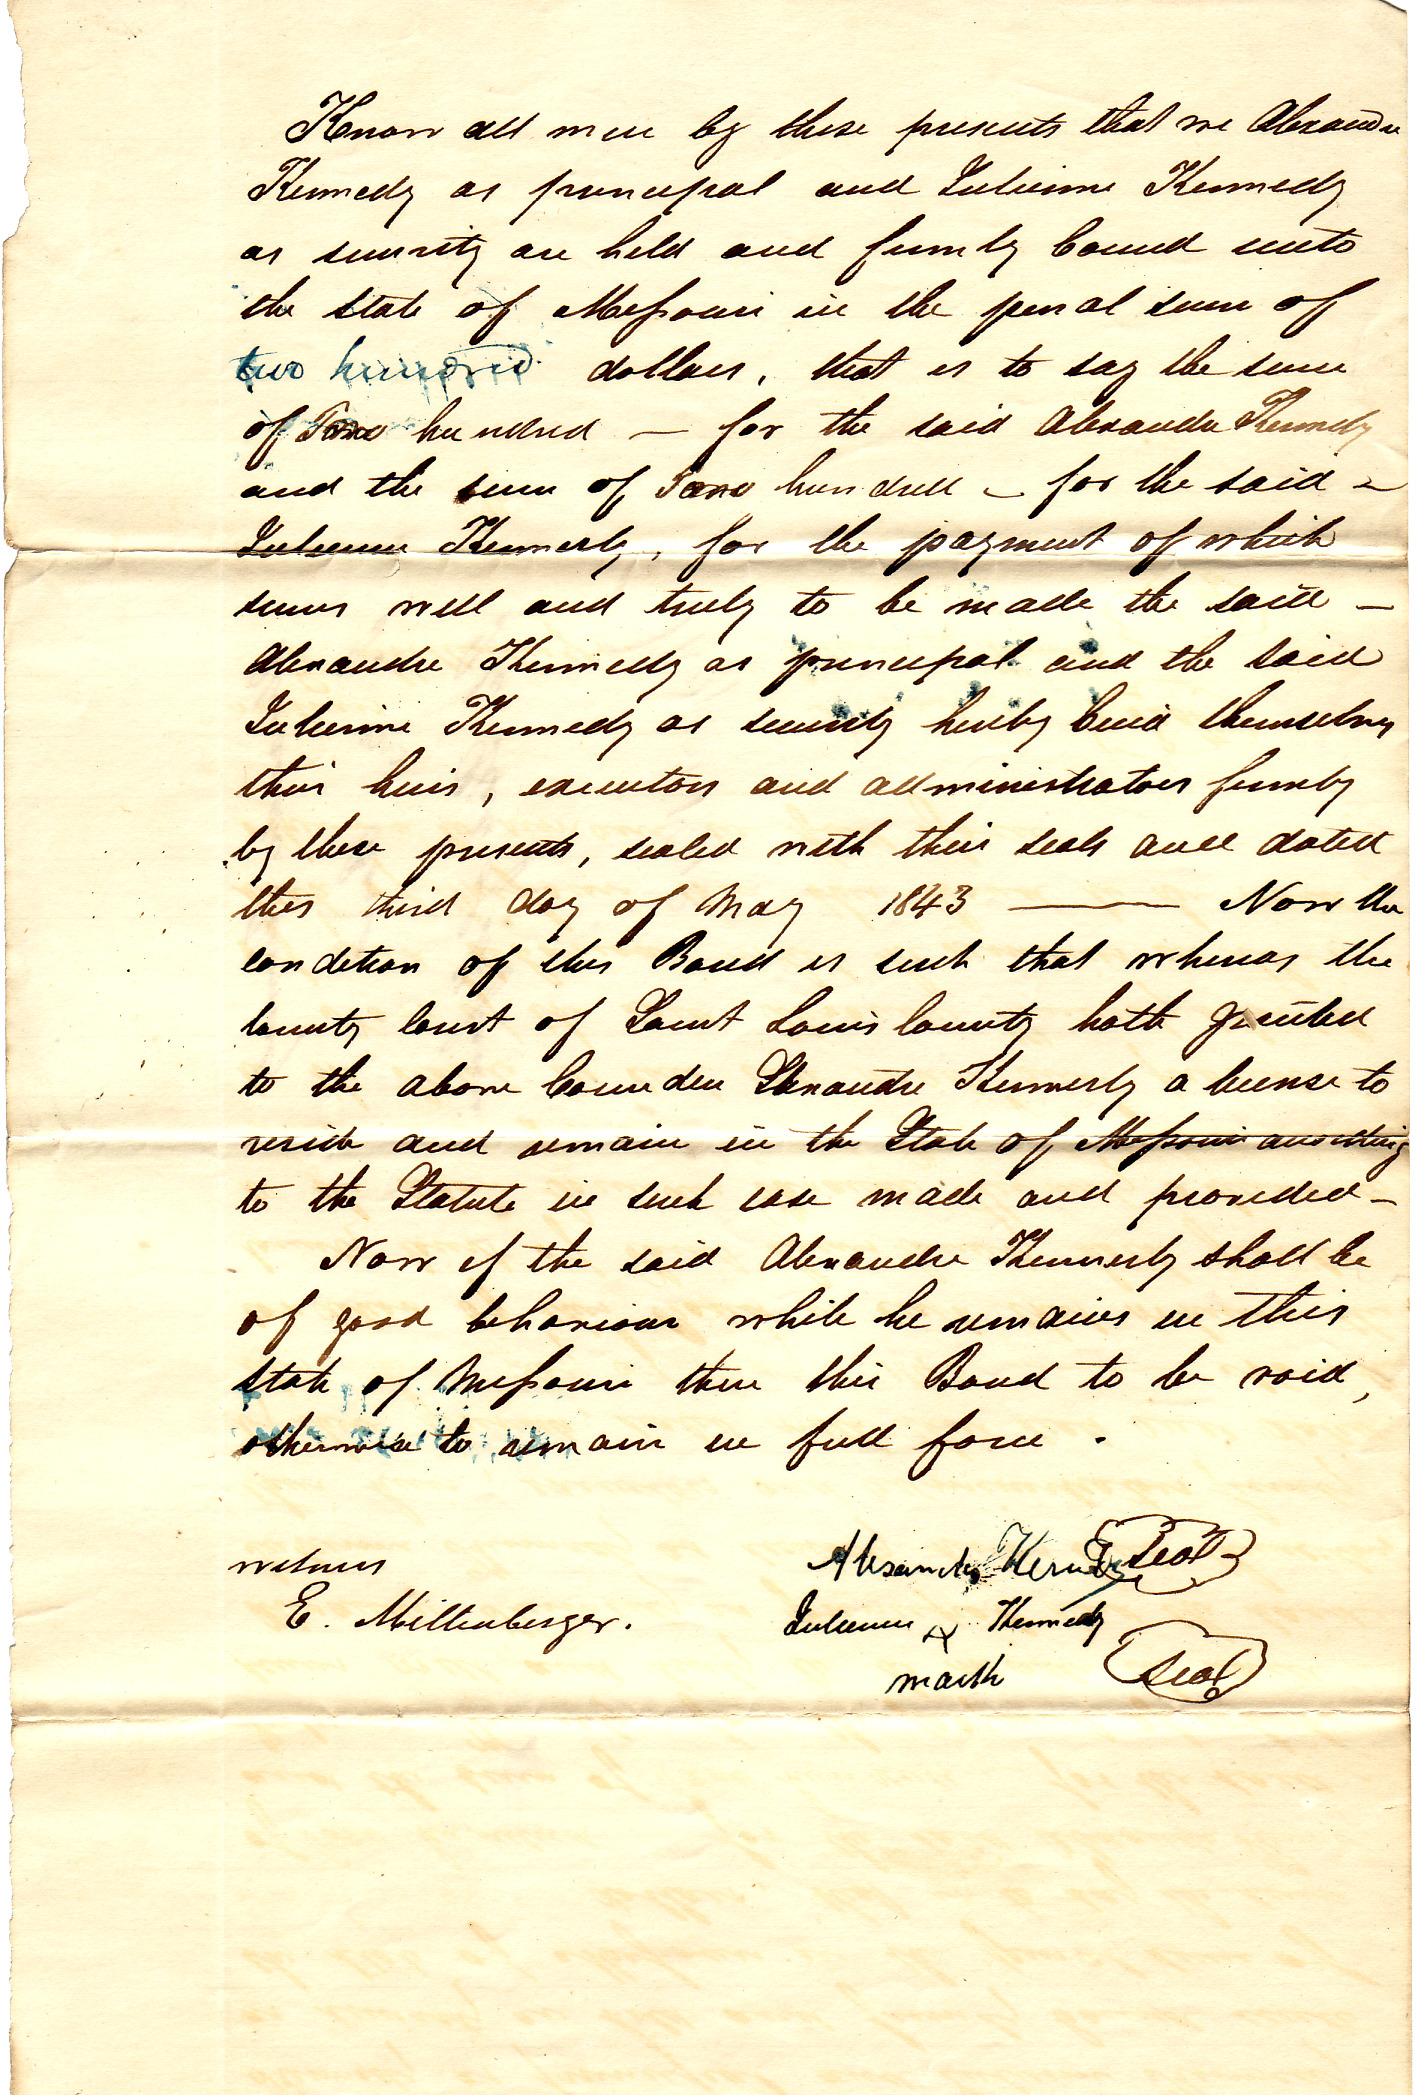 Know all men by these presents that we Alexandre
Kennedy as principal and Julienne Kennedy
as security are held and firmly bound unto
the State of Missouri in the penal sum of
two hundred dollars, that is to say the sum
of Two hundred — for the said Alexandre Kennedy
and the sum of Two hundred — for the said —
Julienne Kennerly, for the payment of which
sums well and truly to be made the said —
Alexandre Kennedy as principal and the said
Julienne Kennedy as security hereby bind themselves
their heirs, executors and administrators firmly
by these presents, sealed with their seals and dated
this third day of May 1843 — Now the
condition of this Bond is such that whereas the
County Court of Saint Louis County hath granted
to the above bounden Alexandre Kennerly a license to
reside and remain in the State of Missouri according
to the Statute in such case made and provided —
Now if the said Alexandre Kennerly shall be
of good behaviour while he remains in this
State of Missouri then this Bond to be void,
otherwise to remain in full force .
witness
E. Miltenberger.
Alexander Seal
Julienne X Kennedy
mark Seal